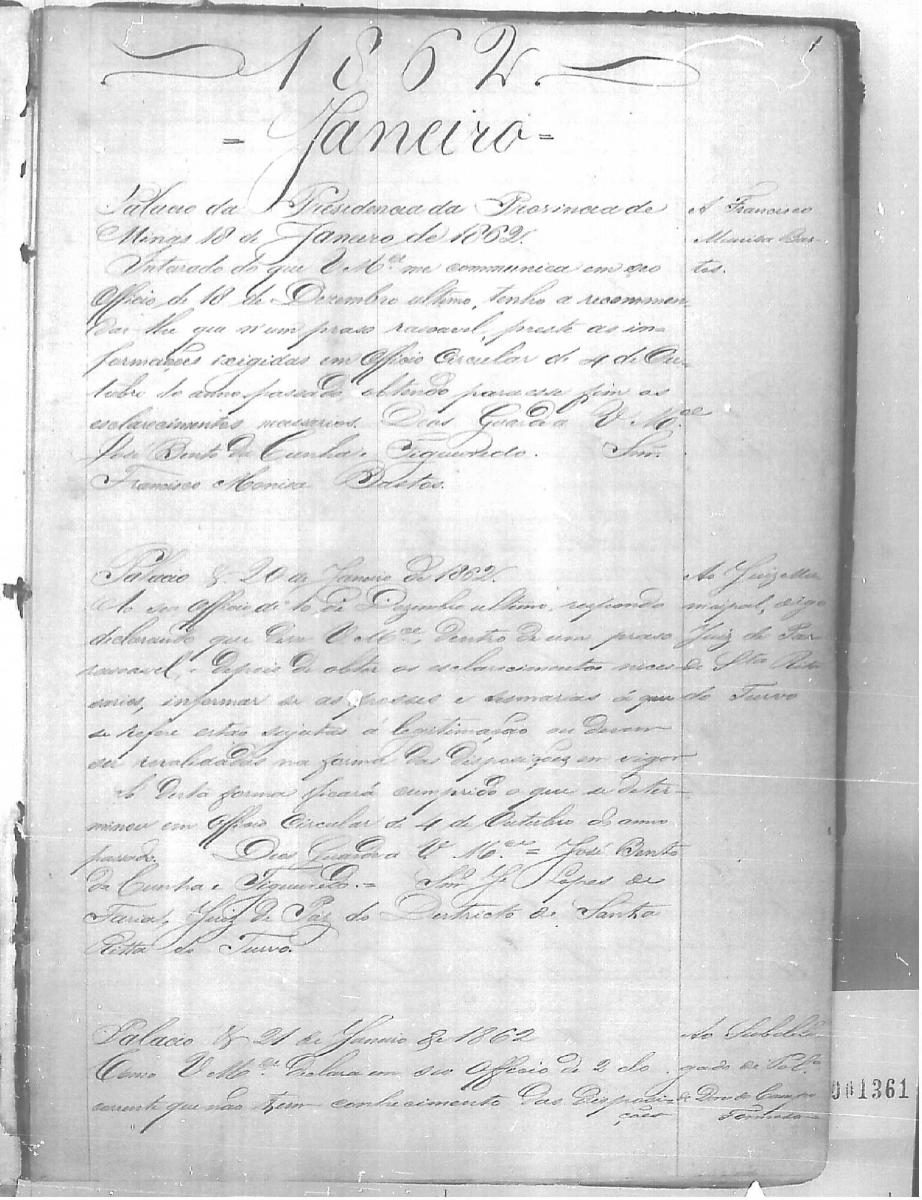 1
1862
= Janeiro =
Palacio da Presidencia da Provincia de
Minas 18 de Janeiro de 1862.
A Francisco
Bas-
tos.
Interado do que V Mce me communica em seo
Officio de 18 de Dezembro ultimo, tenho a recommen
dar lhe que n'um praso rasoavel, preste as in-
formações exigidas em Officio Circular de 4 de Ou-
tubro do anno passado, obtendo para esse fim os
esclarecimentos necessarios. Deos Guarde a V Mce
José Bento da Cunha e Figueiredo. Snr.
Francisco Bastos.
Palacio &. 20 de Janeiro de 1862.
Ao seo Officio de 10 de Dezembro ultimo, respondo
declarando que deve V Mce, dentro de um praso
rasoavel, e depois de obter os esclarecimentos neces-
sarios, informar se as posses e sesmarias á que
se refere estão sujeitas á legitimação ou devem
ser revalidadas na forma das disposições em vigor
Ao Juiz Mu
nicipal, digo
Juiz de Paz
de Sta Rita
do Turvo
E desta forma ficará cumprido o que se deter-
minou em Officio Circular de 4 de Outubro do anno
passado. Deos Guarde a V. Mce = José Bento
da Cunha e Figueiredo. = Snr. Je Lopes de
Faria, Juiz de Paz do Destricto de Santa
Ritta do Turvo.
Palacio & 21 de Janeiro de 1862
Como V Mce declara em seo Officio de 2 do
corrente que não tem conhecimento das disposi-
ções
Ao Subdele
gado de
Dores do Campo
Formoso
001361